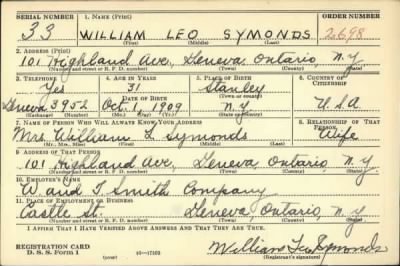 SERIAL NUMBER 1. NAME (Print) ORDER NUMBER
33 WILLIAM LEO SYMONDS 2698
(First) (Middle) (Last)
2. ADDRESS (Print)
101 Highland Ave., Geneva, Ontario, N.Y.
(Number and street or R. F. D. number) (Town) (County) (State)
3. TELEPHONE 4. AGE IN YEARS 5. PLACE OF BIRTH 6. COUNTRY OF CITIZENSHIP
Yes 31 Stanley
DATE OF BIRTH (Town or county)
Geneva 3952 Oct. 1, 1909 N.Y. U.S.A
(Exchange) (Number) (Mo.) (Day) (Yr.) (State or country)
7. NAME OF PERSON WHO WILL ALWAYS KNOW YOUR ADDRESS 8. RELATIONSHIP OF THAT PERSON
Mrs. William L. Symonds Wife
(Mr., Mrs., Miss) (First) (Middle) (Last)
9. ADDRESS OF THAT PERSON
101 Highland Ave., Geneva, Ontario, N.Y.
(Number and street or R. F. D. number) (Town) (County) (State)
10. EMPLOYER'S NAME
W. and T. Smith Company
11. PLACE OF EMPLOYMENT OR BUSINESS
Castle St. Geneva, Ontario, N.Y.
(Number and street or R. F. D. number) (Town) (County) (State)
I AFFIRM THAT I HAVE VERIFIED ABOVE ANSWERS AND THAT THEY ARE TRUE.
REGISTRATION CARD
D. S. S. FORM 1 (over) 16—17105 William Leo Symonds
(Registrant's signature)